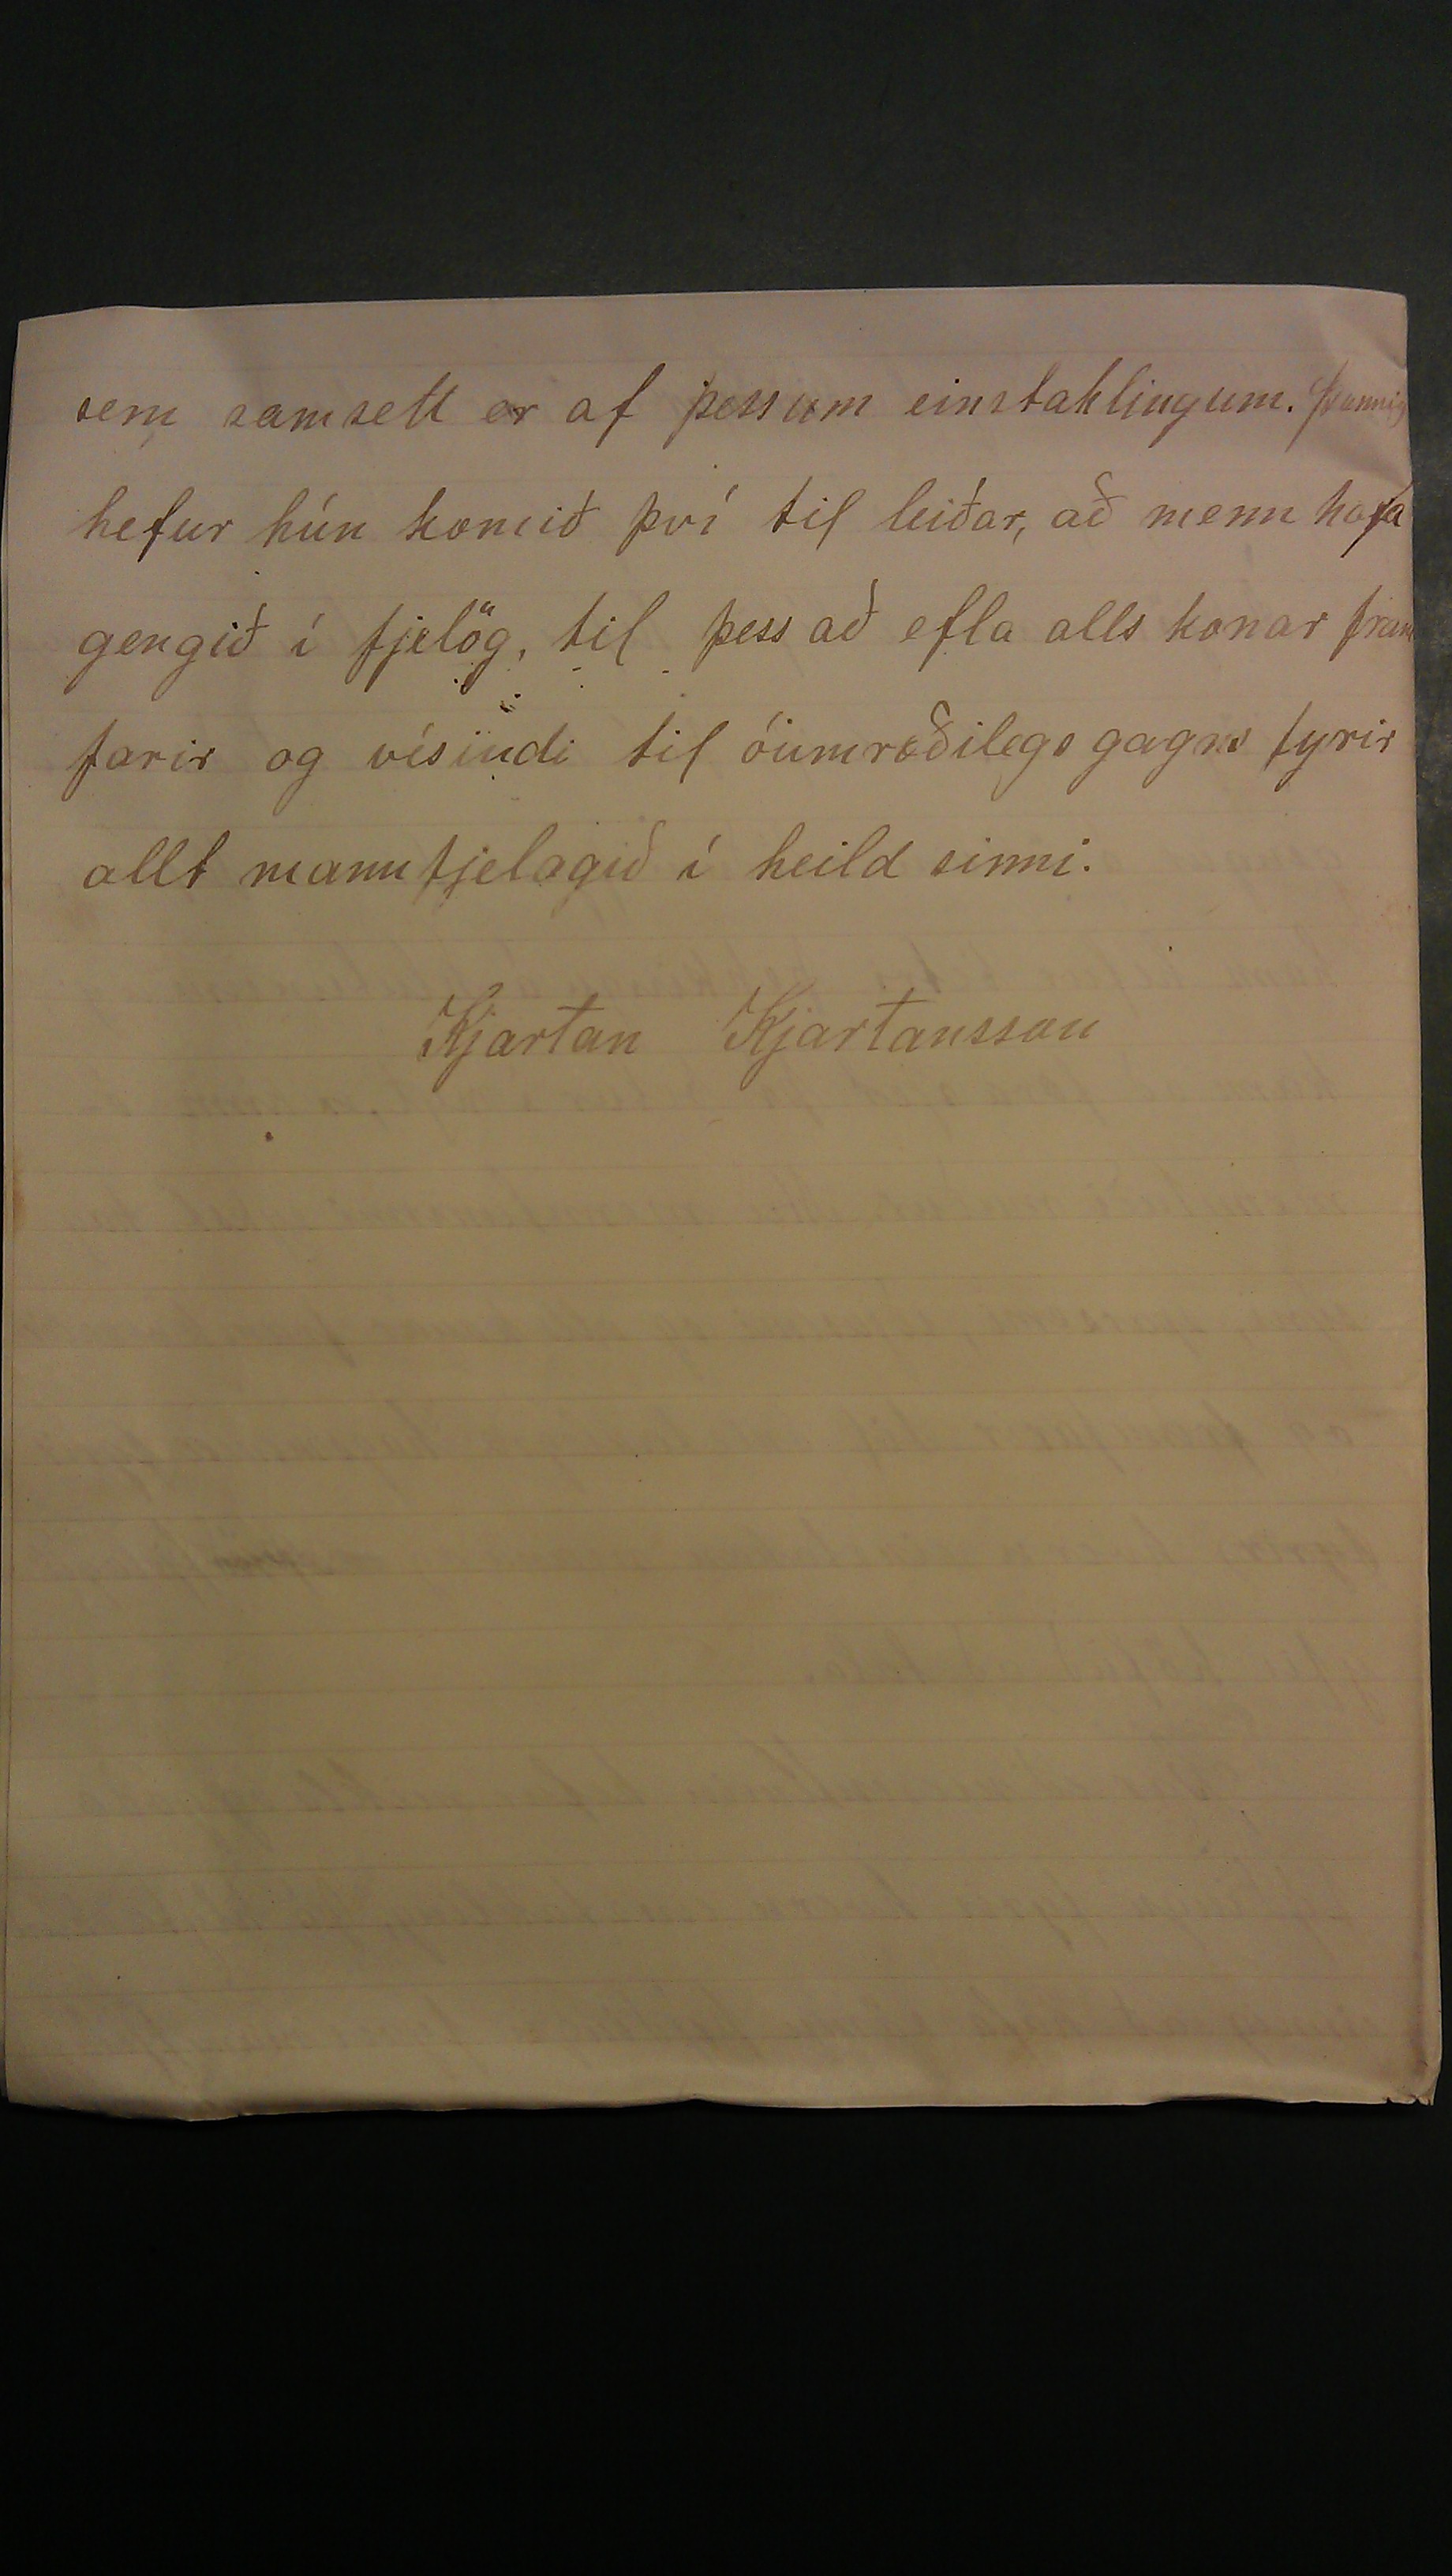 sem samsett er af þessum einstaklingum. þannig
hefur hún komið því til leiðar, að menn hafa
gengið í fjelög, til þess að efla alls konar fram
farir og vísindi til óumræðilegs gagns fyrir
allt mannfjelagið í heild sinni.
Kjartan Kjartansson